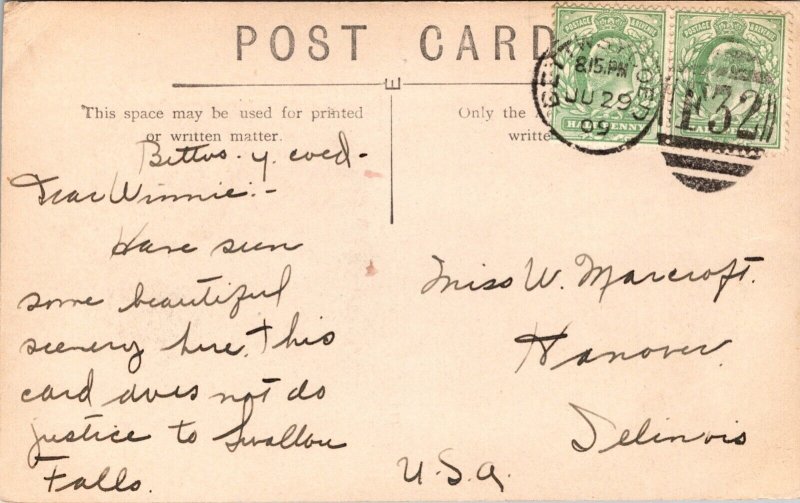 POST CARD
This space may be used for printed
or written matter.
Only the
writte
POSTAGE & REVENUE
POSTAGE & REVENUE
HALFPENNY
8.15.PM
JU 29
09
E32
Bettws-y-coed-
Dear Winnie:-
Have seen
some beautiful
scenery here. This
card does not do
justice to Swallow
Falls.
Miss W. Marcroft.
Hanover.
Illinois
U.S.A.